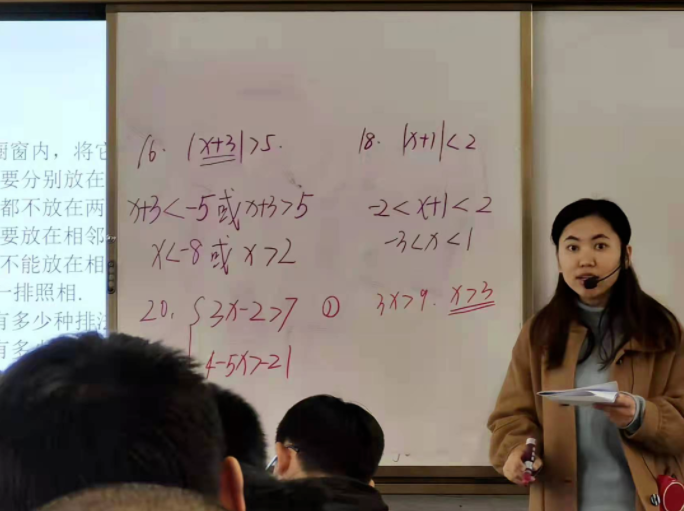 窗内，将它
要分别放在
都不放在两
要放在相邻
不能放在相
一排照相.
有多少种排法
有多
16. |x+3|>5.
x+3<-5或x+3>5
x<-8或x>2
18. |x+1|<2
-2<x+1<2
-3<x<1
20. {3x-2>7 ① 3x>9. x>3
4-5x>-21